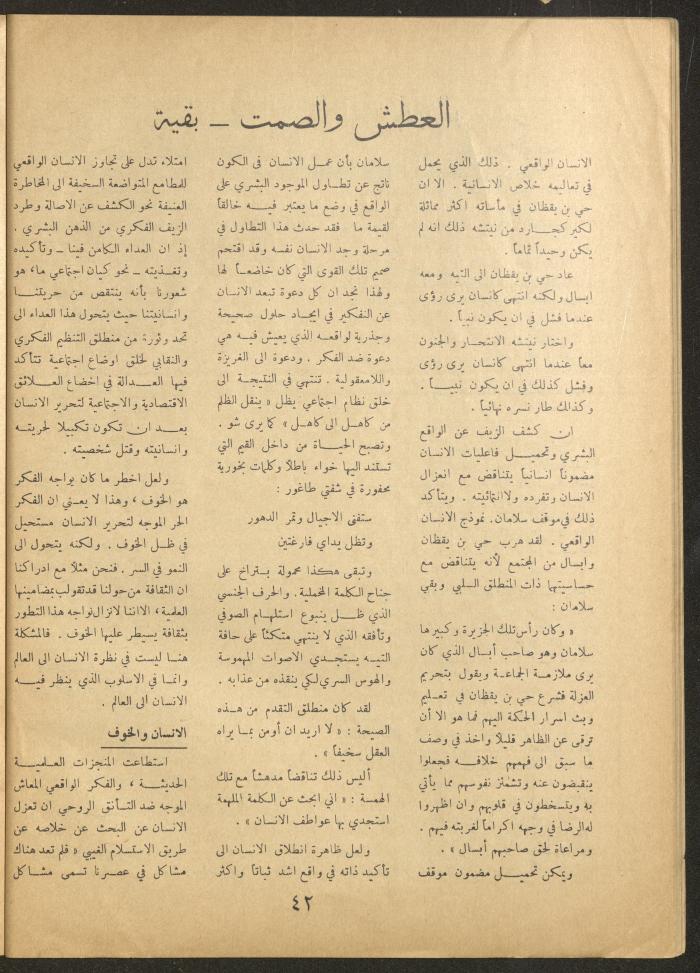 العطش والصمت ــ بقية
الانسان الواقعي . ذلك الذي يحمل
في تعاليمه خلاص الانسانية . الا ان
حي بن يقظان في مأساته اكثر مماثلة
لكبر كجارد من نيتشه ذلك انه لم
يكن وحيداً تماماً .
عاد حي بن يقظان الى التيه ومعه
ابسال ولكنه انتهى كانسان يرى رؤى
عندما فشل في ان يكون نبياً .
واختار نيتشه الانتحار والجنون
معاً عندما انتهى كانسان يرى رؤى
وفشل كذلك في ان يكون نبيــاً .
وكذلك طار نسره نهائياً .
ان كشف الزيف عن الواقع
البشري وتحميــل فاعليات الانسان
مضموناً انسانياً يتناقض مع انعزال
الانسان وتفرده ولاانتمائيته . ويتأكد
ذلك في موقف سلامان. نموذج الانسان
الواقعي . لقد هرب حي بن يقظان
وابسال من المجتمع لأنه يتناقض مع
حساسيتها ذات المنطلق السلبي وبقي
سلامان :
« وكان رأس تلك الجزيرة وكبيرها
سلامان وهو صاحب أبسال الذي كان
يرى ملازمة الجماعة ويقول بتحريم
العزلة فشرع حي بن يقظان في تعليم
وبث اسرار الحكمة اليهم فما هو الا أن
ترقى عن الظاهر قليلاً واخذ في وصف
ما سبق الى فهمهم خلافــه فجعلوا
ينقبضون عنه وتشمئز نفوسهم مما يأتي
به ويتسخطون في قلوبهم وان اظهروا
له الرضا في وجهه اكراماً لغربته فيهم .
ومراعاة لحق صاحبهم أبسال » .
ويمكن تحميــل مضمون موقف
سلامان بأن عمــل الانسان في الكون
ناتج عن تطاول الموجود البشري على
الواقع في وضع ما يعتبر فيــه خالقاً
لقيمة ما فقد حدث هذا التطاول في
مرحلة وجد الانسان نفسه وقد اقتحم
صميم تلك القوى التي كان خاضعاً لها
ولهذا نجد ان كل دعوة تبعد الانسان
عن التفكير في ايجاد حلول صحيحة
وجذرية لواقعه الذي يعيش فيه هي
دعوة ضد الفكر . ودعوة الى الغريزة
واللامعقولية . تنتهي في النتيجة الى
خلق نظام اجتماعي يظل « ينقل الظلم
من كاهل الى كاهل » كما يرى شو .
وتصبح الحيــاة من داخل القيم التي
تستند اليها خواء باطلاً وكلمات بخورية
محفورة في شفتي طاغور :
ستفنى الاجيال وتمر الدهور
وتظل يداي فارغتين
وتبقى هكذا محمولة بتراخ على
جناح الكلمة المخملية . والحرف الجنسي
الذي ظــل ينبوع استلهــام الصوفي
وتأفقه الذي لا ينتهي متكئاً على حافة
التيــه يستجــدي الاصوات المهموسة
والهوس السري لكي ينقذه من عذابه .
لقد كان منطلق التقدم من هــذه
الصيحة : « لا اريد ان أومن بمــا يراه
العقل سخيفاً » .
أليس ذلك تناقضاً مدهشاً مع تلك
الهمسة : « اني ابحث عن الكلمة الملهمة
استجدي بها عواطف الانسان » .
ولعل ظاهرة انطلاق الانسان الى
تأكيد ذاته في واقع اشد ثباتاً واكثر
امتلاء تدل على تجاوز الانسان الواقعي
للمطامع المتواضعة السخيفة الى المخاطرة
العنيفة نحو الكشف عن الاصالة وطرد
الزيف الفكري من الذهن البشري .
إذ ان العداء الكامن فينا ــ وتأكيده
وتغذيته ــ نحو كيان اجتماعي ما، هو
شعورنا بأنه ينتقص من حريتنــا
وانسانيتنا حيث يتحول هذا العداء الى
تحد وثورة من منطلق التنظيم الفكري
والنقابي لخلق اوضاع اجتماعية تتأكد
فيها العــدالة في اخضاع العــلائق
الاقتصادية والاجتماعية لتحرير الانسان
بعــد ان تكون تكبيلا لحريتــه
وانسانيته وقتل شخصيته .
ولعل اخطر ما كان يواجه الفكر
هو الخوف ، وهذا لا يعــني ان الفكر
الحر الموجه لتحرير الانسان مستحيل
في ظــل الخوف . ولكنه يتحول الى
النمو في السر . فنحن مثلاً مع ادراكنا
ان الثقافة من حولنا قد تقولب بمضامينها
العلمية ، الا اننا لا نزال نواجه هذا التطور
بثقافة يسيطر عليها الخوف . فالمشكلة
هنــا ليست في نظرة الانسان الى العالم
وانما في الاسلوب الذي ينظر فيــه
الانسان الى العالم .
الانسان والخوف
استطاعت المنجزات العــلميــة
الحديثــة ، والفكر الواقعي المعاش
الموجه ضد التــأنق الروحي ان تعزل
الانسان عن البحث عن خلاصه عن
طريق الاستسلام الغيبي « فلم تعد هناك
مشاكل في عصرنا تسمى مشــاكل
٤٢